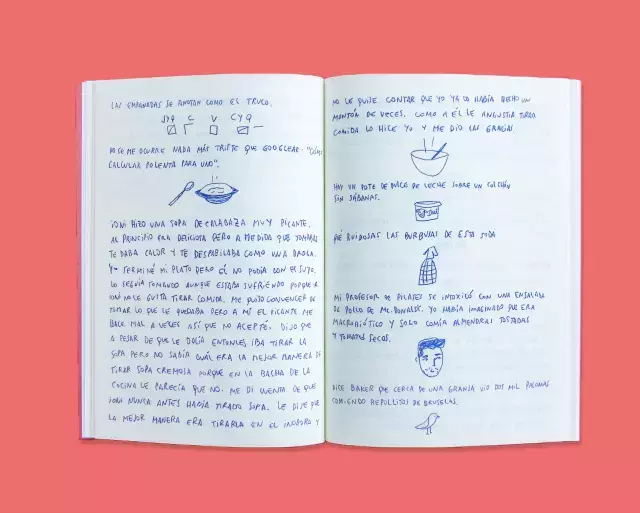 LAS EMPANADAS SE ANOTAN COMO EL TRUCO.
JYQ C V CYQ
NO SE ME OCURRE NADA MÁS TRISTE QUE GOOGLEAR: "CÓMO
CALCULAR POLENTA PARA UNO".
IONI HIZO UNA SOPA DE CALABAZA MUY PICANTE.
AL PRINCIPIO ERA DELICIOSA PERO A MEDIDA QUE TOMABAS
TE DABA CALOR Y TE DESPABILABA COMO UNA DROGA.
YO TERMINÉ MI PLATO PERO ÉL NO PODÍA CON EL SUYO.
LO SEGUÍA TOMANDO AUNQUE ESTABA SUFRIENDO PORQUE A
IONI NO LE GUSTA TIRAR COMIDA. ME QUISO CONVENCER DE
TOMAR LO QUE LE QUEDABA PERO A MÍ EL PICANTE ME
HACE MAL A VECES ASÍ QUE NO ACEPTÉ. DIJO QUE
A PESAR DE QUE LE DOLÍA ENTONCES IBA TIRAR LA
SOPA PERO NO SABÍA CUÁL ERA LA MEJOR MANERA DE
TIRAR SOPA CREMOSA PORQUE EN LA BACHA DE LA
COCINA LE PARECÍA QUE NO. ME DI CUENTA DE QUE
IONI NUNCA ANTES HABÍA TIRADO SOPA. LE DIJE QUE
LA MEJOR MANERA ERA TIRARLA EN EL INODORO Y
NO LE QUISE CONTAR QUE YO YA LO HABÍA HECHO UN
MONTÓN DE VECES. COMO A ÉL LE ANGUSTIA TIRAR
COMIDA LO HICE YO Y ME DIO LAS GRACIAS.
HAY UN POTE DE DULCE DE LECHE SOBRE UN COLCHÓN
SIN SÁBANAS.
QUÉ RUIDOSAS LAS BURBUJAS DE ESTA SODA
MI PROFESOR DE PILATES SE INTOXICÓ CON UNA ENSALADA
DE POLLO DE MC.DONALDS. YO HABÍA IMAGINADO QUE ERA
MACROBIÓTICO Y SOLO COMÍA ALMENDRAS TOSTADAS
Y TOMATES SECOS.
DICE BAKER QUE CERCA DE UNA GRANJA VIO DOS MIL PALOMAS
COMIENDO REPOLLITOS DE BRUSELAS.